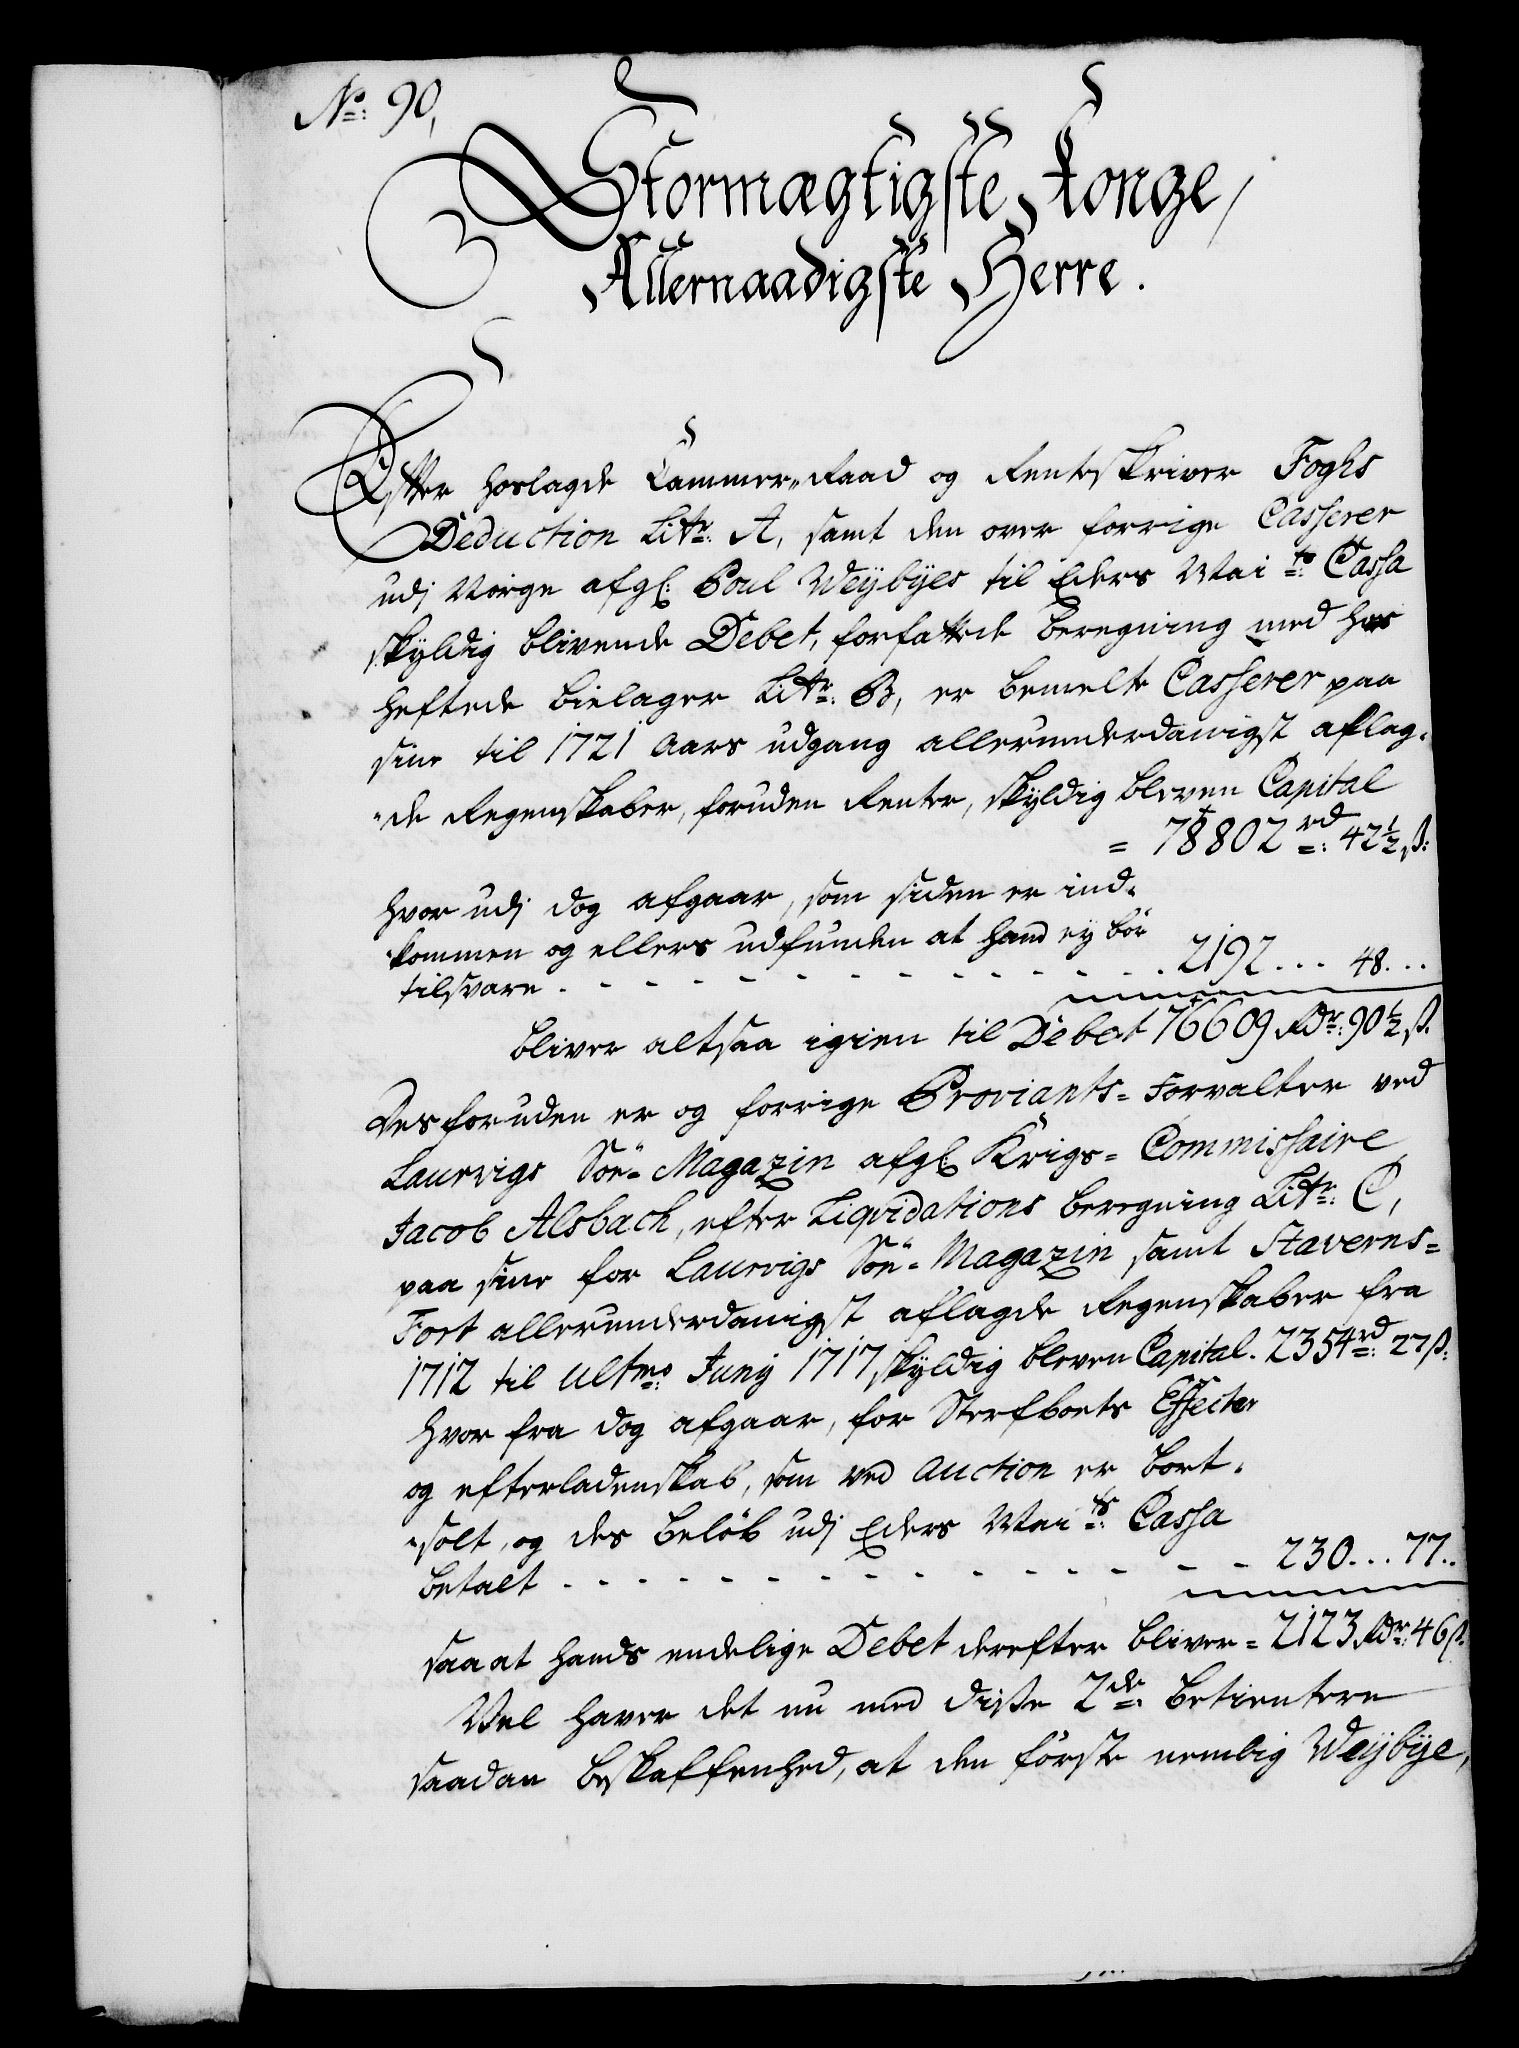 No: 90,
Stormægtigste Konge,
Allernaadigste Herre.
Efter hoslagde Cammer-Raad og Renteskriver Foghs
Deduction Litr: A, samt den over forrige Casserer
udj Norge afgl: Poul Weybyes til Eders Maits: Cassa
skyldig blivende Debet, forfattede beregning med hos
heftede bielager Litr: B, er bemelte Casserer paa
sine til 1721 Aars udgang allerunderdanigst aflag-
-de Regenskaber, foruden Renter, skyldig bleven Capital
= 78802 rd: 42½ ß:
hvor udj dog afgaar, som siden er ind-
-kommen og ellers udfunden at hand ey bör
tilsvare - - - - - - - - - - - - 2192... 48...
bliver altsaa igien til Debet 76609 Rdr: 90½ ß.
Desforuden er og forrige Proviants-Forvalter ved
Laurvigs Söe-Magazin afgl: Krigs-Commissaire
Jacob Alsbach, efter Liqvidations beregning Litr: C,
paa sine for Laurvigs Söe-Magazin samt Staverns-
Fort allerunderdanigst aflagde Regenskaber fra
1712 til Ultmo: Junij 1717 skyldig bleven Capital. 2354 rd: 27 ß:
hvor fra dog afgaar, for Sterfboets Effecter
og efterladenskab, som ved Auction er bort-
-solt, og des belöb udj Eders Maits: Cassa
betalt - - - - - - - - - - - - 230... 77..
saa at hands endelige Debet derefter bliver = 2123 Rdr: 46 ß.
Vel haver det nu med disse 2de: betientere
saadan beskaffenhed, at den förste nemblig Weybye,